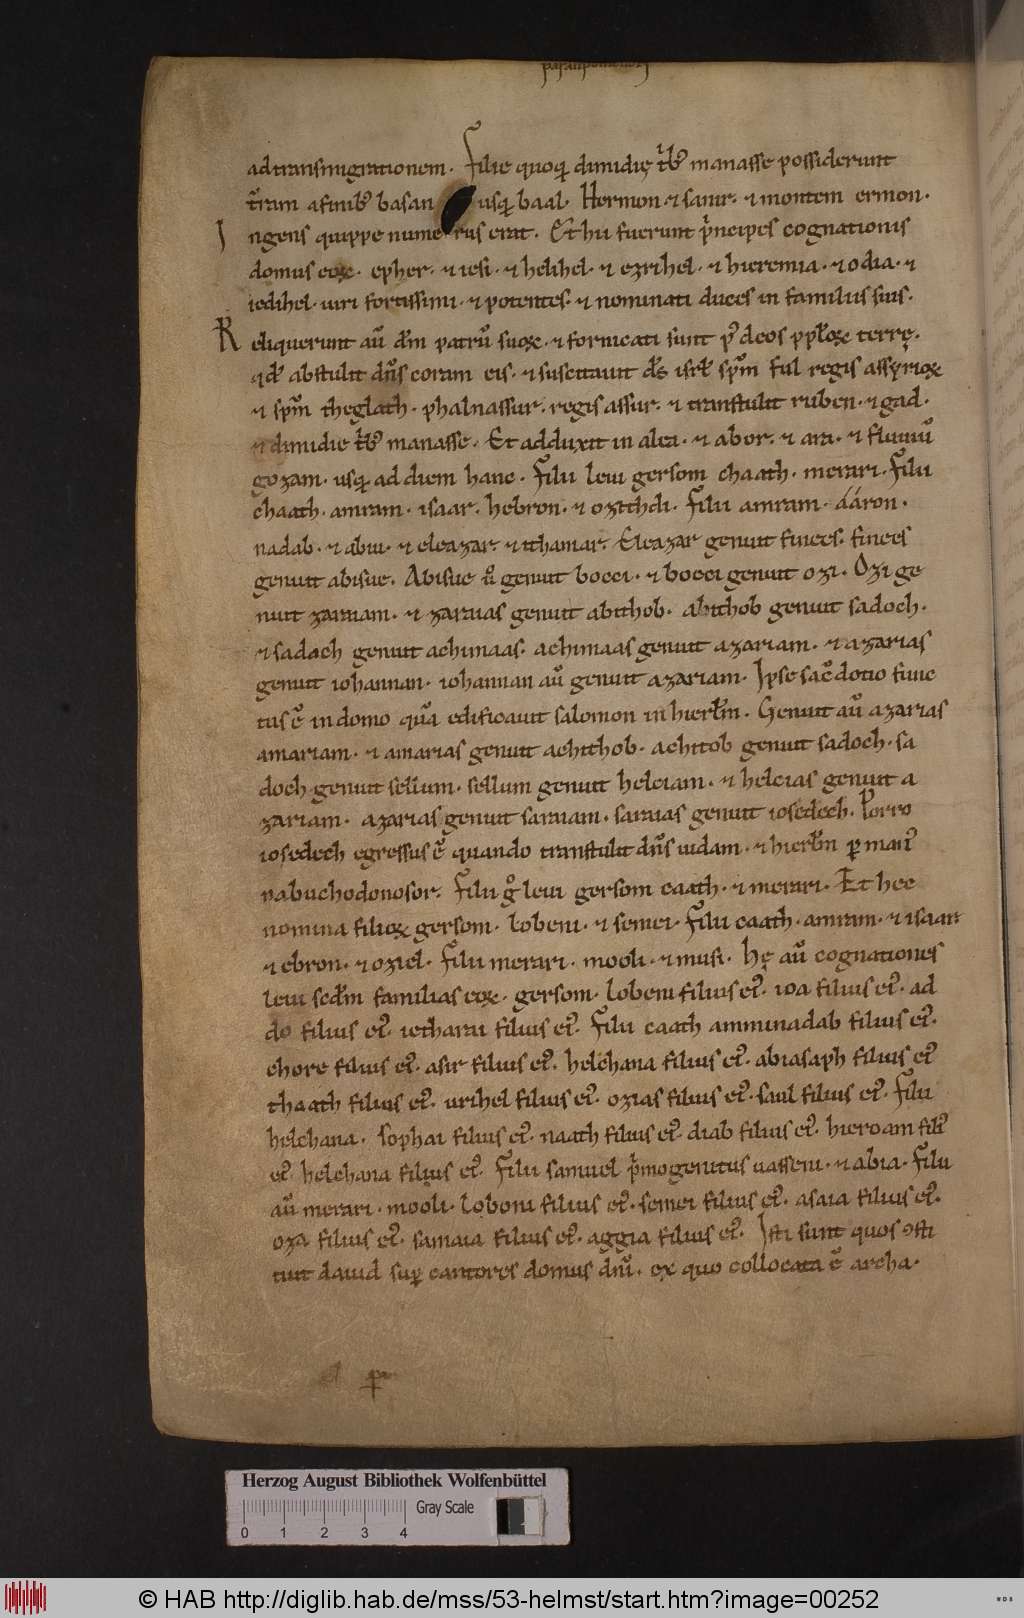 paralipomenon
ad transmigrationem. Filie quoq; dimidię tⁱbꝰ manasse possiderunt
t̄ram a finibꝰ basan usq; baal. Hermon ⁊ sanir. ⁊ montem ermon.
Ingens quippe numerus erat. Et hii fuerunt pⁱncipes cognationis
domus eoꝝ. epher. ⁊ iesi. ⁊ helihel. ⁊ ezrihel. ⁊ hieremia. ⁊ odia. ⁊
iedihel. uiri fortissimi. ⁊ potentes. ⁊ nominati duces in familiis suis.
Reliquerunt aū dm̄ patrū suoꝝ. ⁊ fornicati sunt p̄ deos pp̄loꝝ terrę.
qđ abstulit dn̄s coram eis. ⁊ suscitauit ds̄ isrl̄ spm̄ ful regis assyrioꝝ
⁊ spm̄ theglath. phalnassur. regis assur. ⁊ transtulit ruben. ⁊ gad.
⁊ dimidie tⁱbꝰ manasse. Et adduxit in alea. ⁊ abor. ⁊ ara. ⁊ fluuiū
gozam. usq; ad diem hanc. Filii leui gersom chaath. merari. Filii
chaath. amram. isaar. hebron. ⁊ ozihdi. Filii amram. ááron.
nadab. ⁊ abiu. ⁊ eleazar. ⁊ ithamar. Eleazar genuit finees. finees
genuit abisue. Abisue ů genuit bocci. ⁊ bocci genuit ozi. Ozi ge
nuit zaruam. ⁊ zaruias genuit abithob. abithob genuit sadoch.
⁊ sadoch genuit achimaas. achimaas genuit azariam. ⁊ azarias
genuit iohannan. iohannan aū genuit azariam. Ipse sac̄dotio func
tus ē in domo quā edificauit salomon in hierl̄m. Genuit aū azarias
amariam. ⁊ amarias genuit achithob. achitob genuit sadoch. sa
doch genuit sellum. sellum genuit helciam. ⁊ helcias genuit a
zariam. azarias genuit saraiam. saraias genuit iosedech. Porro
iosedech egressus ē quando transtulit dn̄s iudam. ⁊ hierl̄m ꝑ manꝰ
nabuchodonosor. Filii g̊ leui gersom caath. ⁊ merari. Et hec
nomina filioꝝ gersom. lobeni. ⁊ semei. Filii caath. amram. ⁊ isaar
⁊ ebron. ⁊ oziel. Filii merari. mooli. ⁊ musi. Hę aū cognationes
leui scdm̄ familias eoꝝ. gersom. lobeni filius eiꝰ. ioa filius eiꝰ. ad
do filius eiꝰ. ietharai filius eiꝰ. Filii caath amminadab filius eiꝰ.
chore filius eiꝰ. asir filius eiꝰ. helchana filius eiꝰ. abiasaph filius eiꝰ
thaath filius eiꝰ. urihel filius eiꝰ. ozias filius eiꝰ. saul filius eiꝰ. Filii
helchana. sophai filius eiꝰ. naath filius eiꝰ. diab filius eiꝰ. hieroam filiꝰ
eiꝰ. helchana filius eiꝰ. Filii samuel pⁱmogenitus uasseni. ⁊ abia. Filii
aū merari. mooli. loboni filius eiꝰ. semei filius eiꝰ. asaia filius eiꝰ.
oza filius eiꝰ. samaia filius eiꝰ. aggia filius eiꝰ. Isti sunt quos ꝯsti
tuit dauid suꝑ cantores domus dn̄i. ex quo collocata ē archa.
Herzog August Bibliothek Wolfenbüttel
Gray Scale
0 1 2 3 4
© HAB http://diglib.hab.de/mss/53-helmst/start.htm?image=00252